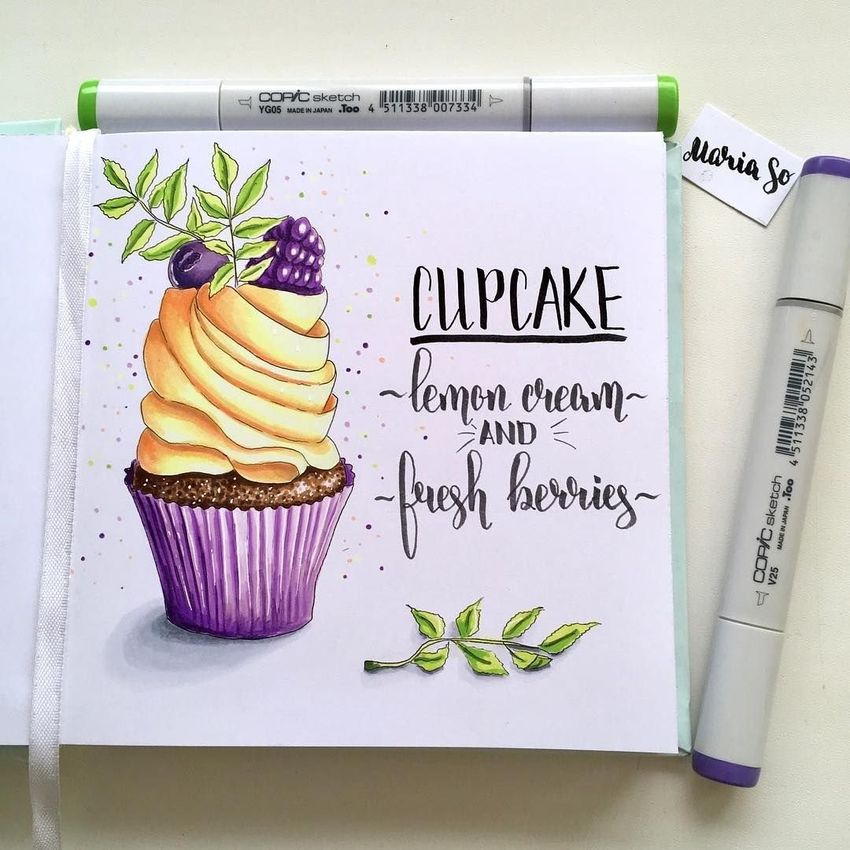 COPIC sketch
YG05 MADE IN JAPAN .Too
4 511338 007334
Maria So
CUPCAKE
~lemon cream~
AND
~fresh berries~
COPIC sketch
V25 MADE IN JAPAN .Too
4 511338 052143